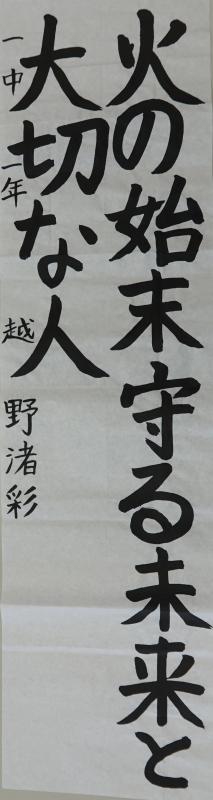 火の始末守る未来と
大切な人
一中 二年 越野渚彩